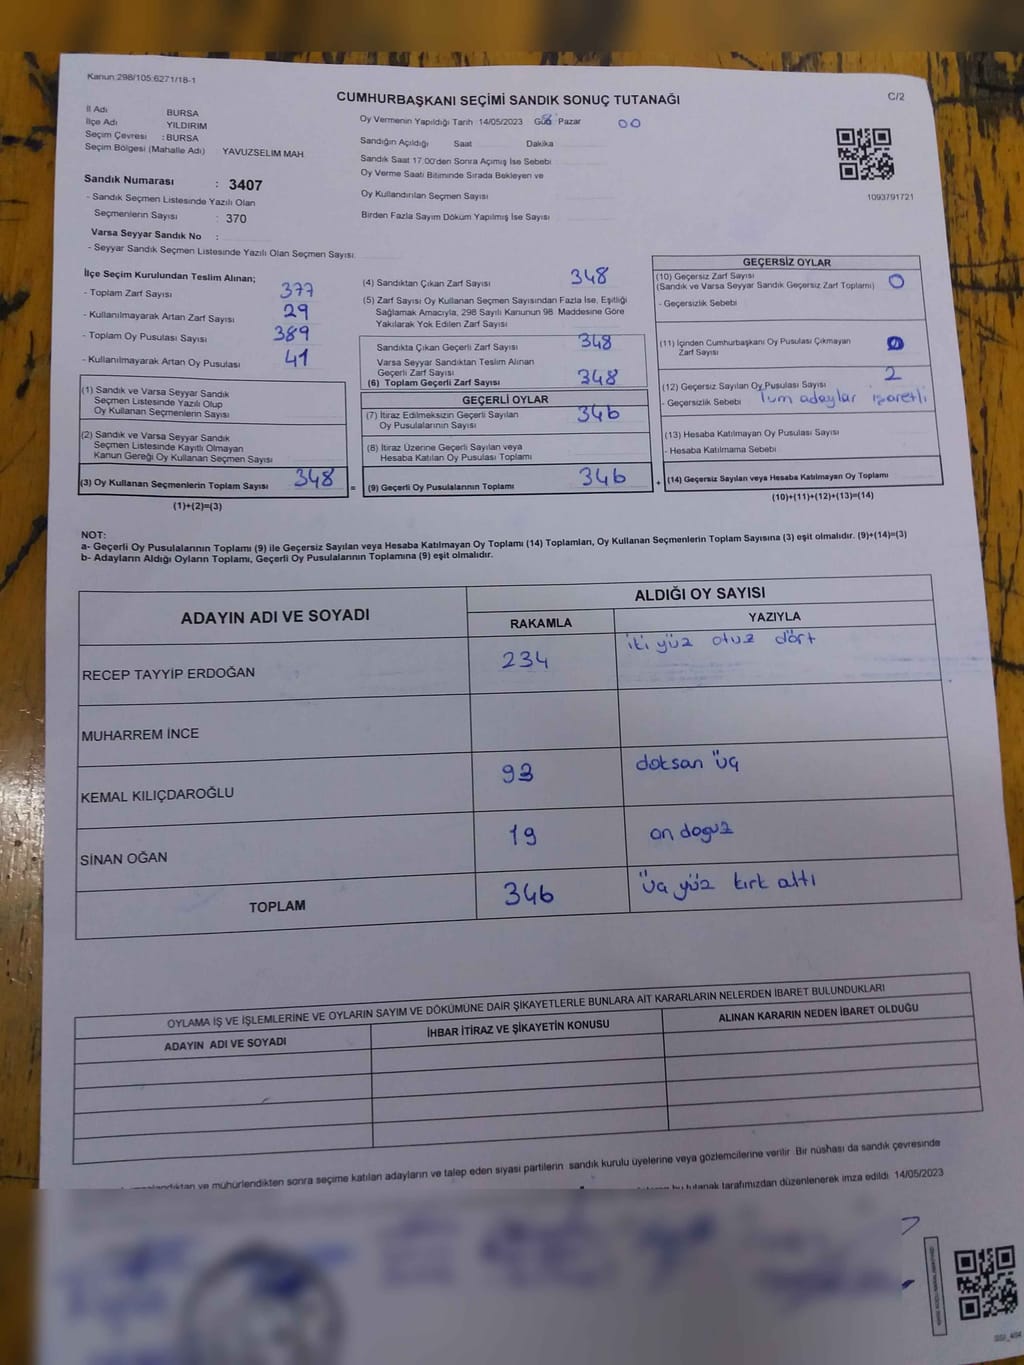 Kanun:298/105:6271/18-1
CUMHURBAŞKANI SEÇİMİ SANDIK SONUÇ TUTANAĞI
C/2
İl Adı BURSA
İlçe Adı YILDIRIM
Seçim Çevresi : BURSA
Seçim Bölgesi (Mahalle Adı) YAVUZSELIM MAH.
Sandık Numarası : 3407
- Sandık Seçmen Listesinde Yazılı Olan
Seçmenlerin Sayısı : 370
Varsa Seyyar Sandık No :
- Seyyar Sandık Seçmen Listesinde Yazılı Olan Seçmen Sayısı:
Oy Vermenin Yapıldığı Tarih 14/05/2023 Pazar 00
Sandığın Açıldığı Saat Dakika
Sandık Saat 17.00'den Sonra Açımış İse Sebebi
Oy Verme Saati Bitiminde Sırada Bekleyen ve
Oy Kullandırılan Seçmen Sayısı
Birden Fazla Sayım Döküm Yapılmış İse Sayısı
1093791721
İlçe Seçim Kurulundan Teslim Alınan;
- Toplam Zarf Sayısı 377
- Kullanılmayarak Artan Zarf Sayısı 29
- Toplam Oy Pusulası Sayısı 389
- Kullanılmayarak Artan Oy Pusulası 41
(1) Sandık ve Varsa Seyyar Sandık
Seçmen Listesinde Yazılı Olup
Oy Kullanan Seçmenlerin Sayısı
(2) Sandık ve Varsa Seyyar Sandık
Seçmen Listesinde Kayıtlı Olmayan
Kanun Gereği Oy Kullanan Seçmen Sayısı
(3) Oy Kullanan Seçmenlerin Toplam Sayısı 348 =
(1)+(2)=(3)
(4) Sandıktan Çıkan Zarf Sayısı 348
(5) Zarf Sayısı Oy Kullanan Seçmen Sayısından Fazla İse, Eşitliği
Sağlamak Amacıyla, 298 Sayılı Kanunun 98. Maddesine Göre
Yakılarak Yok Edilen Zarf Sayısı
Sandıkta Çıkan Geçerli Zarf Sayısı 348
Varsa Seyyar Sandıktan Teslim Alınan
Geçerli Zarf Sayısı
(6) Toplam Geçerli Zarf Sayısı 348
GEÇERLİ OYLAR
(7) İtiraz Edilmeksizin Geçerli Sayılan
Oy Pusulalarının Sayısı 346
(8) İtiraz Üzerine Geçerli Sayılan veya
Hesaba Katılan Oy Pusulası Toplamı
(9) Geçerli Oy Pusulalarının Toplamı 346 +
GEÇERSİZ OYLAR
(10) Geçersiz Zarf Sayısı
(Sandık ve Varsa Seyyar Sandık Geçersiz Zarf Toplamı) 0
- Geçersizlik Sebebi
(11) İçinden Cumhurbaşkanı Oy Pusulası Çıkmayan
Zarf Sayısı 0
(12) Geçersiz Sayılan Oy Pusulası Sayısı 2
- Geçersizlik Sebebi Tüm adaylar işaretli
(13) Hesaba Katılmayan Oy Pusulası Sayısı
- Hesaba Katılmama Sebebi
(14) Geçersiz Sayılan veya Hesaba Katılmayan Oy Toplamı
(10)+(11)+(12)+(13)=(14)
NOT:
a- Geçerli Oy Pusulalarının Toplamı (9) ile Geçersiz Sayılan veya Hesaba Katılmayan Oy Toplamı (14) Toplamları, Oy Kullanan Seçmenlerin Toplam Sayısına (3) eşit olmalıdır. (9)+(14)=(3)
b- Adayların Aldığı Oyların Toplamı, Geçerli Oy Pusulalarının Toplamına (9) eşit olmalıdır.
ADAYIN ADI VE SOYADI
ALDIĞI OY SAYISI
RAKAMLA YAZIYLA
RECEP TAYYİP ERDOĞAN 234 iki yüz otuz dört
MUHARREM İNCE
KEMAL KILIÇDAROĞLU 93 doksan üç
SİNAN OĞAN 19 on doguz
TOPLAM 346 üç yüz kırk altı
OYLAMA İŞ VE İŞLEMLERİNE VE OYLARIN SAYIM VE DÖKÜMÜNE DAİR ŞİKAYETLERLE BUNLARA AİT KARARLARIN NELERDEN İBARET BULUNDUKLARI
ADAYIN ADI VE SOYADI İHBAR İTİRAZ VE ŞİKAYETİN KONUSU ALINAN KARARIN NEDEN İBARET OLDUĞU
ve mühürlendikten sonra seçime katılan adayların ve talep eden siyasi partilerin sandık kurulu üyelerine veya gözlemcilerine verilir. Bir nüshası da sandık çevresinde
bu tutanak tarafımızdan düzenlenerek imza edildi. 14/05/2023